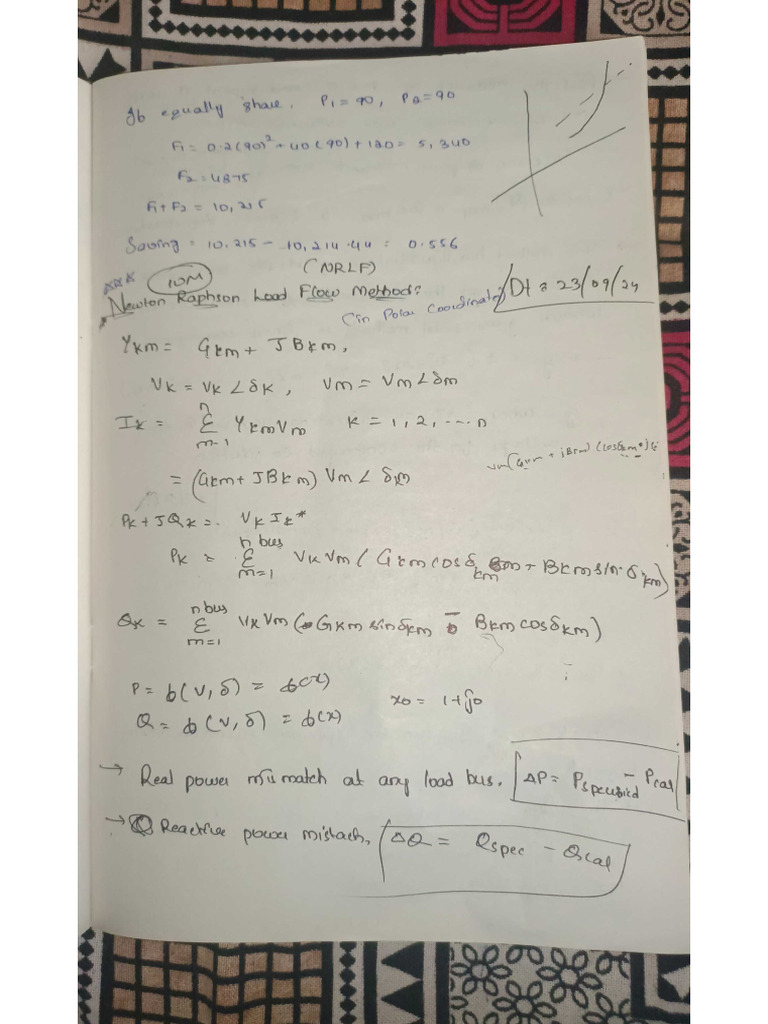 If equally share, P1 = 90, P2 = 90
F1 = 0.2(90)² + 40(90) + 120 = 5,340
F2 = 4875
F1 + F2 = 10,215
Saving = 10,215 - 10,214.44 = 0.556
(NRLF)
*** 10M
Newton Raphson Load Flow Method:
(in Polar Coordinates)
Dt : 23/09/24
Ykm = Gkm + JBkm,
Vk = Vk∠δk, Vm = Vm∠δm
Ik = Σ_{m=1}^{n} Ykm Vm k = 1, 2, ....n
= (Gkm + JBkm) Vm∠δm
Vm(Gkm + jBkm)(cosδkm
Pk + JQk = VkIk*
Pk = Σ_{m=1}^{n bus} VkVm(Gkm cosδkm + Bkm sin δkm)
Qk = Σ_{m=1}^{n bus} VkVm(Gkm sinδkm - Bkm cosδkm)
P = f(V, δ) = f(x)
x0 = 1+j0
Q = f(V, δ) = f(x)
→ Real power mismatch at any load bus. ΔP = Pspecified - Pcal
→ Reactive power mistach, ΔQ = Qspec - Qcal